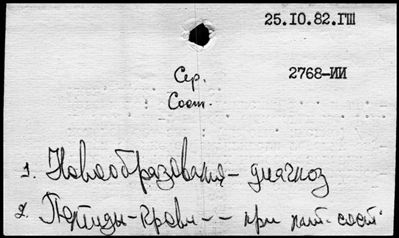 25.10.82.ГШ
Сер. 2768-ИИ
Сост.
1. Новообразования - диагноз
2. Пептиды - крови - - при пат. сост.